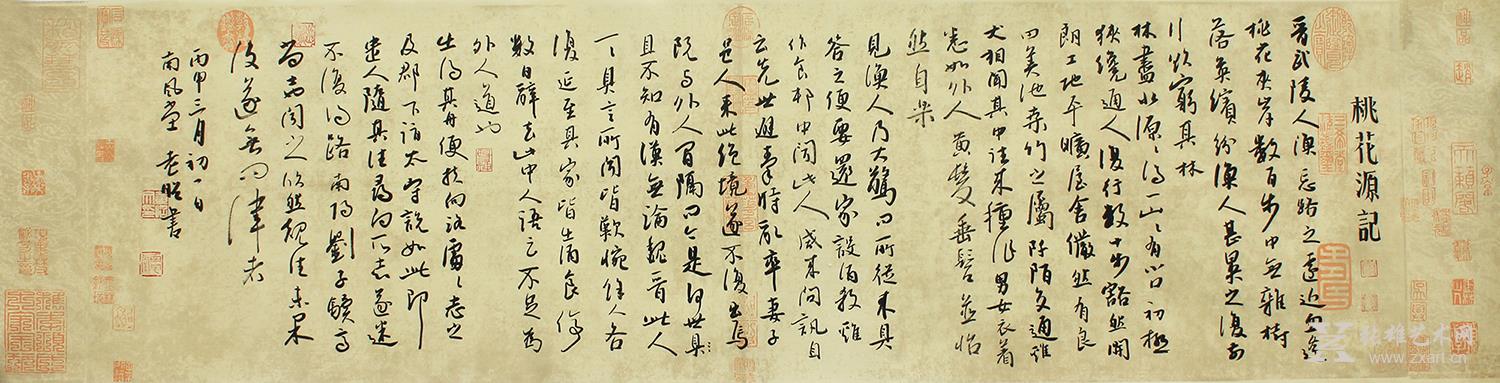 桃花源記
晋武陵人漁忘路之遠近忽逢
桃花夾岸數百步中無雜樹
落英繽紛漁人甚異之復前
行欲窮其林
林盡水源〻得一山〻有小口初極
狹纔通人復行數十步豁然開
朗土地平曠屋舍儼然有良
田美池桑竹之屬阡陌交通雞
犬相聞其中往來種作男女衣著
悉如外人黃髮垂髫並怡
然自樂
見漁人乃大驚問所從來具
答之便要還家設酒殺雞
作食村中聞此人咸來問訊自
云先世避秦時亂率妻子
邑人來此絕境遂不復出焉
既與外人間隔問今是何世具
且不知有漢無論魏晉此人
一一具言所聞皆歎惋餘人各
復延至其家皆出酒食停
數日辭去此中人語云不足為
外人道也
出得其舟便扶向路處〻志之
及郡下詣太守說如此即
遣人隨其往尋向所志遂迷
不復得路南陽劉子驥高
尚聞之欣然規往未果
後遂無問津者
丙申三月初一日
南風堂 老昭書
雄艺术网
www.zxart.cn